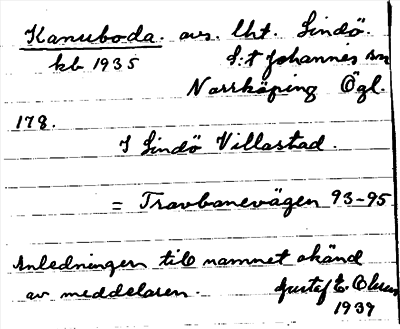 Kanuboda. avs. lht. Lindö.
kb 1935 S:t Johannes sn
Norrköping Ögl.
178.
I Lindö Villastad.
= Travbanevägen 93-95
Anledningen till namnet okänd
av meddelaren. Gustaf E. Olsson
1939